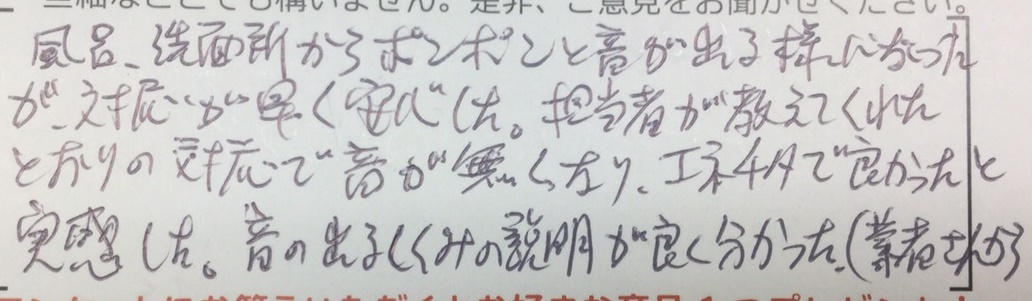 些細なことでも構いません。是非、ご意見をお聞かせください。
風呂、洗面所からポンポンと音が出る様になった
が、対応が早く安心した。担当者が教えてくれた
とおりの対応で音が無くなり、エネチタで良かったと
実感した。音の出るしくみの説明が良く分かった。(業者さんから